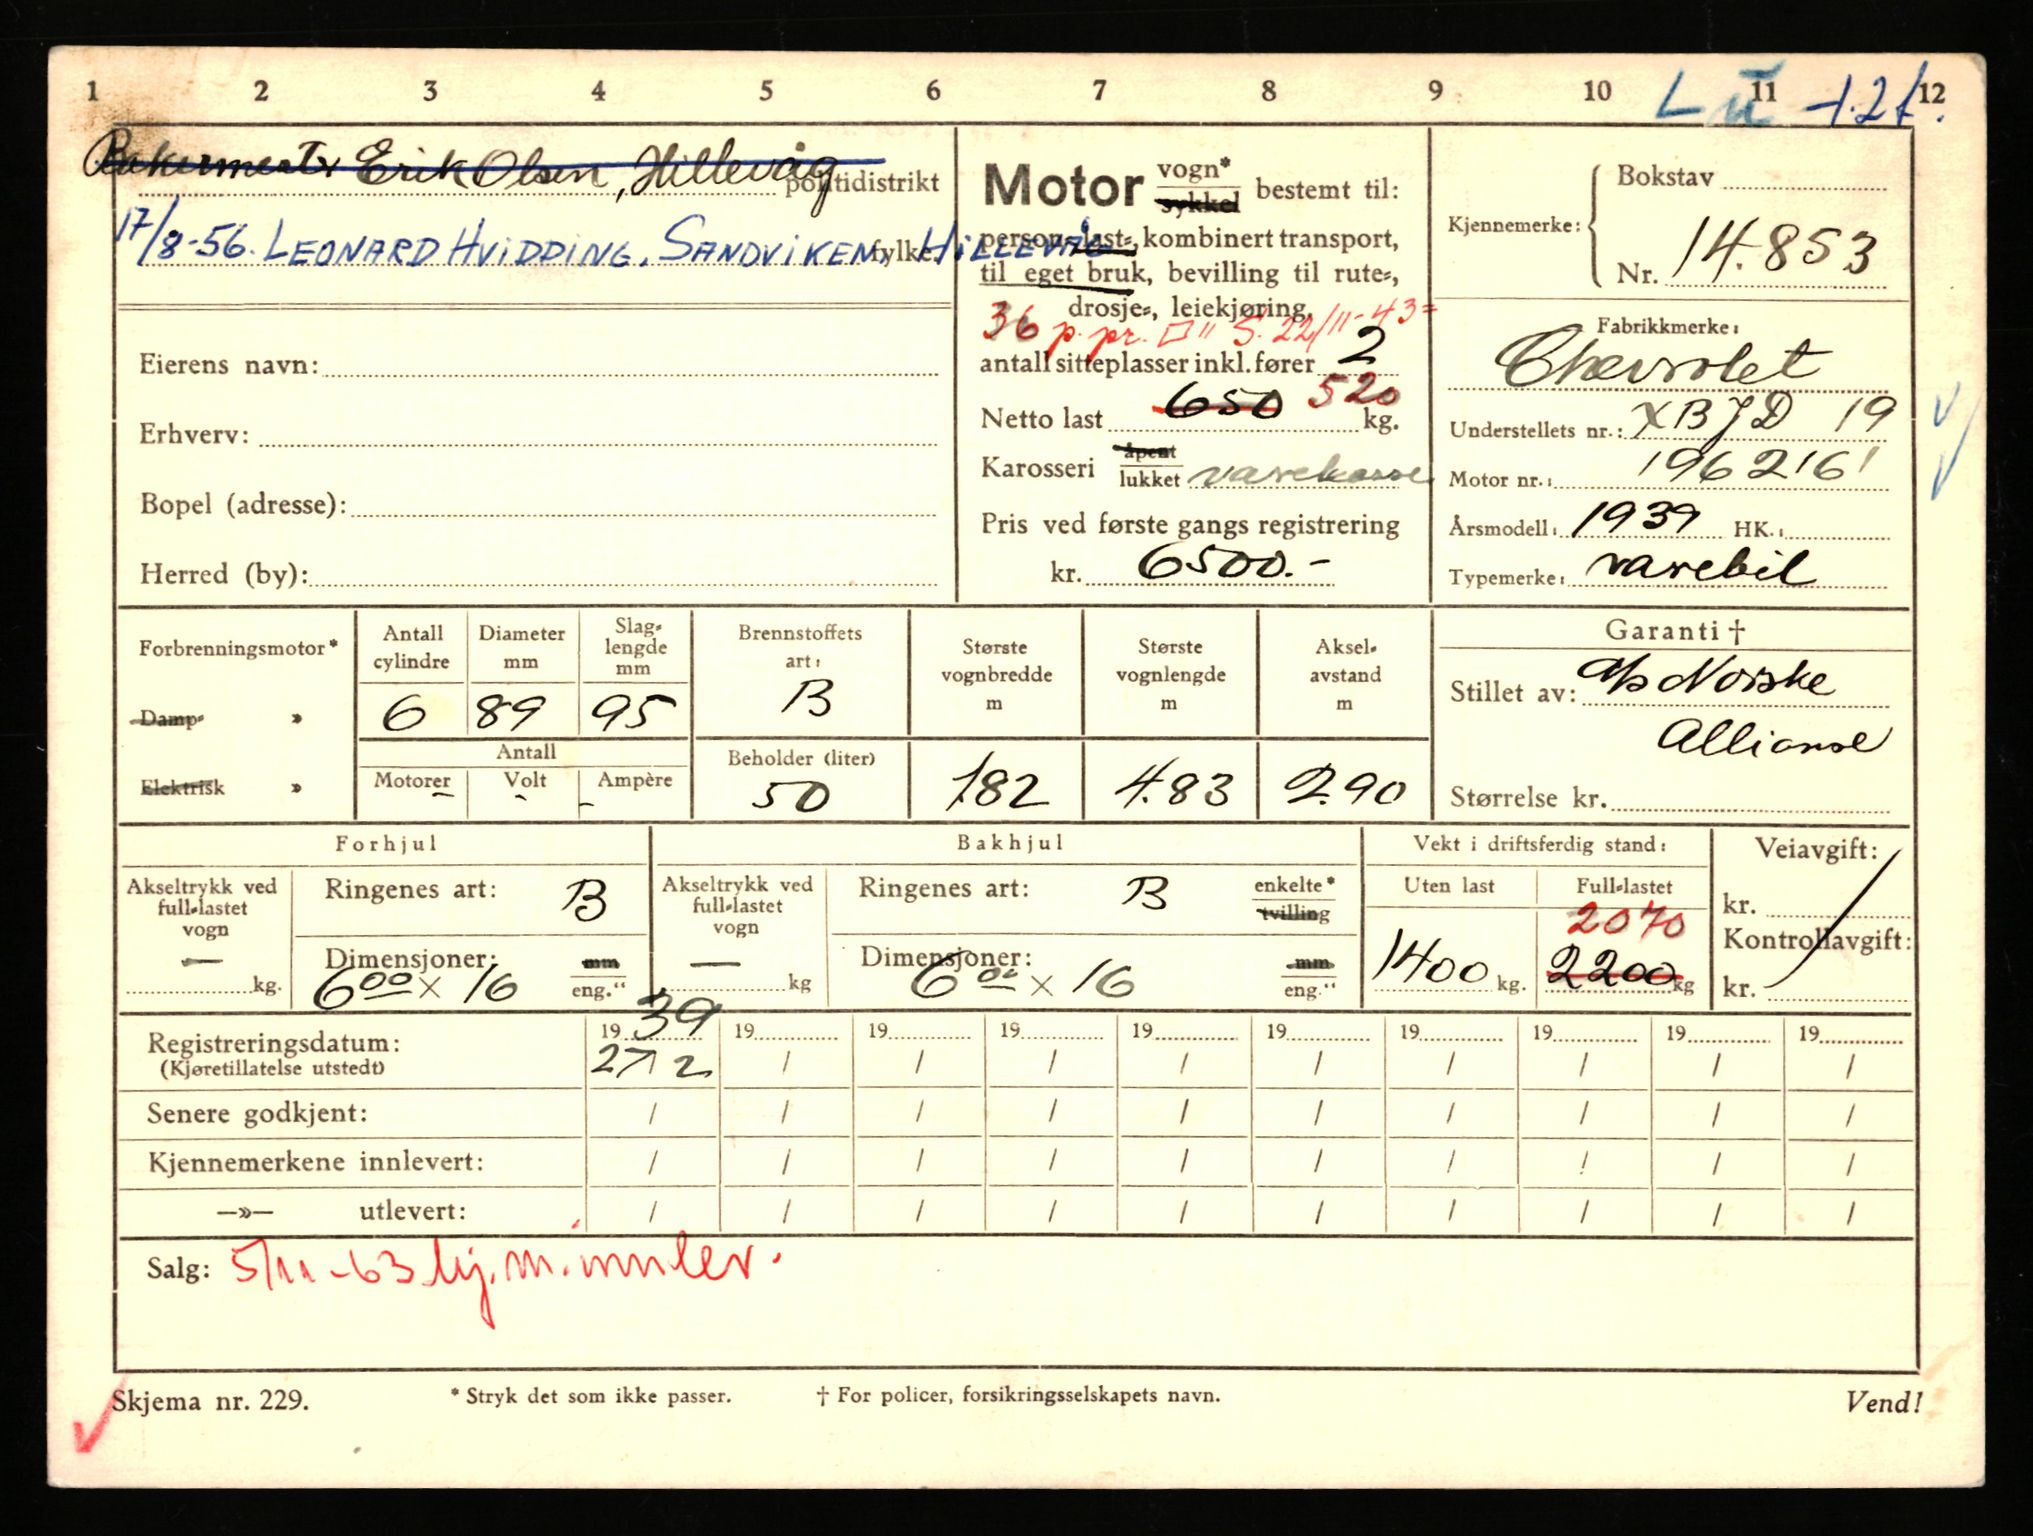 1 2 3 4 5 6 7 8 9 10 11 12
L
Bakermester Erik Olsen, Hillevåg politidistrikt
17/8-56. LEONARD HVIDDING, SANDVIKEN, HILLEVÅG fylke.
Eierens navn:
Erhverv:
Bopel (adresse):
Herred (by):
Motor vogn* sykkel bestemt til:
person-, last-, kombinert transport,
til eget bruk, bevilling til rute-,
drosje-, leiekjøring,
36 p. pr. □" S. 22/11-43=
antall sitteplasser inkl. fører 2
Netto last 650 520 kg.
Karosseri åpent lukket varekasse
Pris ved første gangs registrering
kr. 6500.-
Kjennemerke: Bokstav
Nr. 14.853
Fabrikkmerke:
Chevrolet
Understellets nr.: XBJD 19
Motor nr.: 1962161
Årsmodell: 1939 HK.:
Typemerke: varebil
Forbrenningsmotor*
Damp- »
Elektrisk »
Antall cylindre
6
Diameter mm
89
Slag-lengde mm
95
Antall
Motorer - Volt - Ampère -
Brennstoffets art:
B
Beholder (liter)
50
Største vognbredde m
1.82
Største vognlengde m
4.83
Aksel-avstand m
2.90
Garanti †
Stillet av: A/S Norske
Allianse
Størrelse kr.
Forhjul
Akseltrykk ved full-lastet vogn
— kg.
Ringenes art: B
Dimensjoner: mm
6⁰⁰ x 16 eng."
Bakhjul
Akseltrykk ved full-lastet vogn
— kg
Ringenes art: B enkelte* tvilling
Dimensjoner: mm
6⁰⁰ x 16 eng."
Vekt i driftsferdig stand:
Uten last
1400 kg.
Full-lastet
2070
2200 kg
Veiavgift:
kr.
Kontrollavgift:
kr.
Registreringsdatum: 1939 19 19 19 19 19 19 19 19 19
(Kjøretillatelse utstedt) 27/2 / / / / / / / / /
Senere godkjent: / / / / / / / / / /
Kjennemerkene innlevert: / / / / / / / / / /
—»— utlevert: / / / / / / / / / /
Salg: 5/11-63 kj.m. innlev.
Skjema nr. 229. * Stryk det som ikke passer. † For policer, forsikringsselskapets navn. Vend!